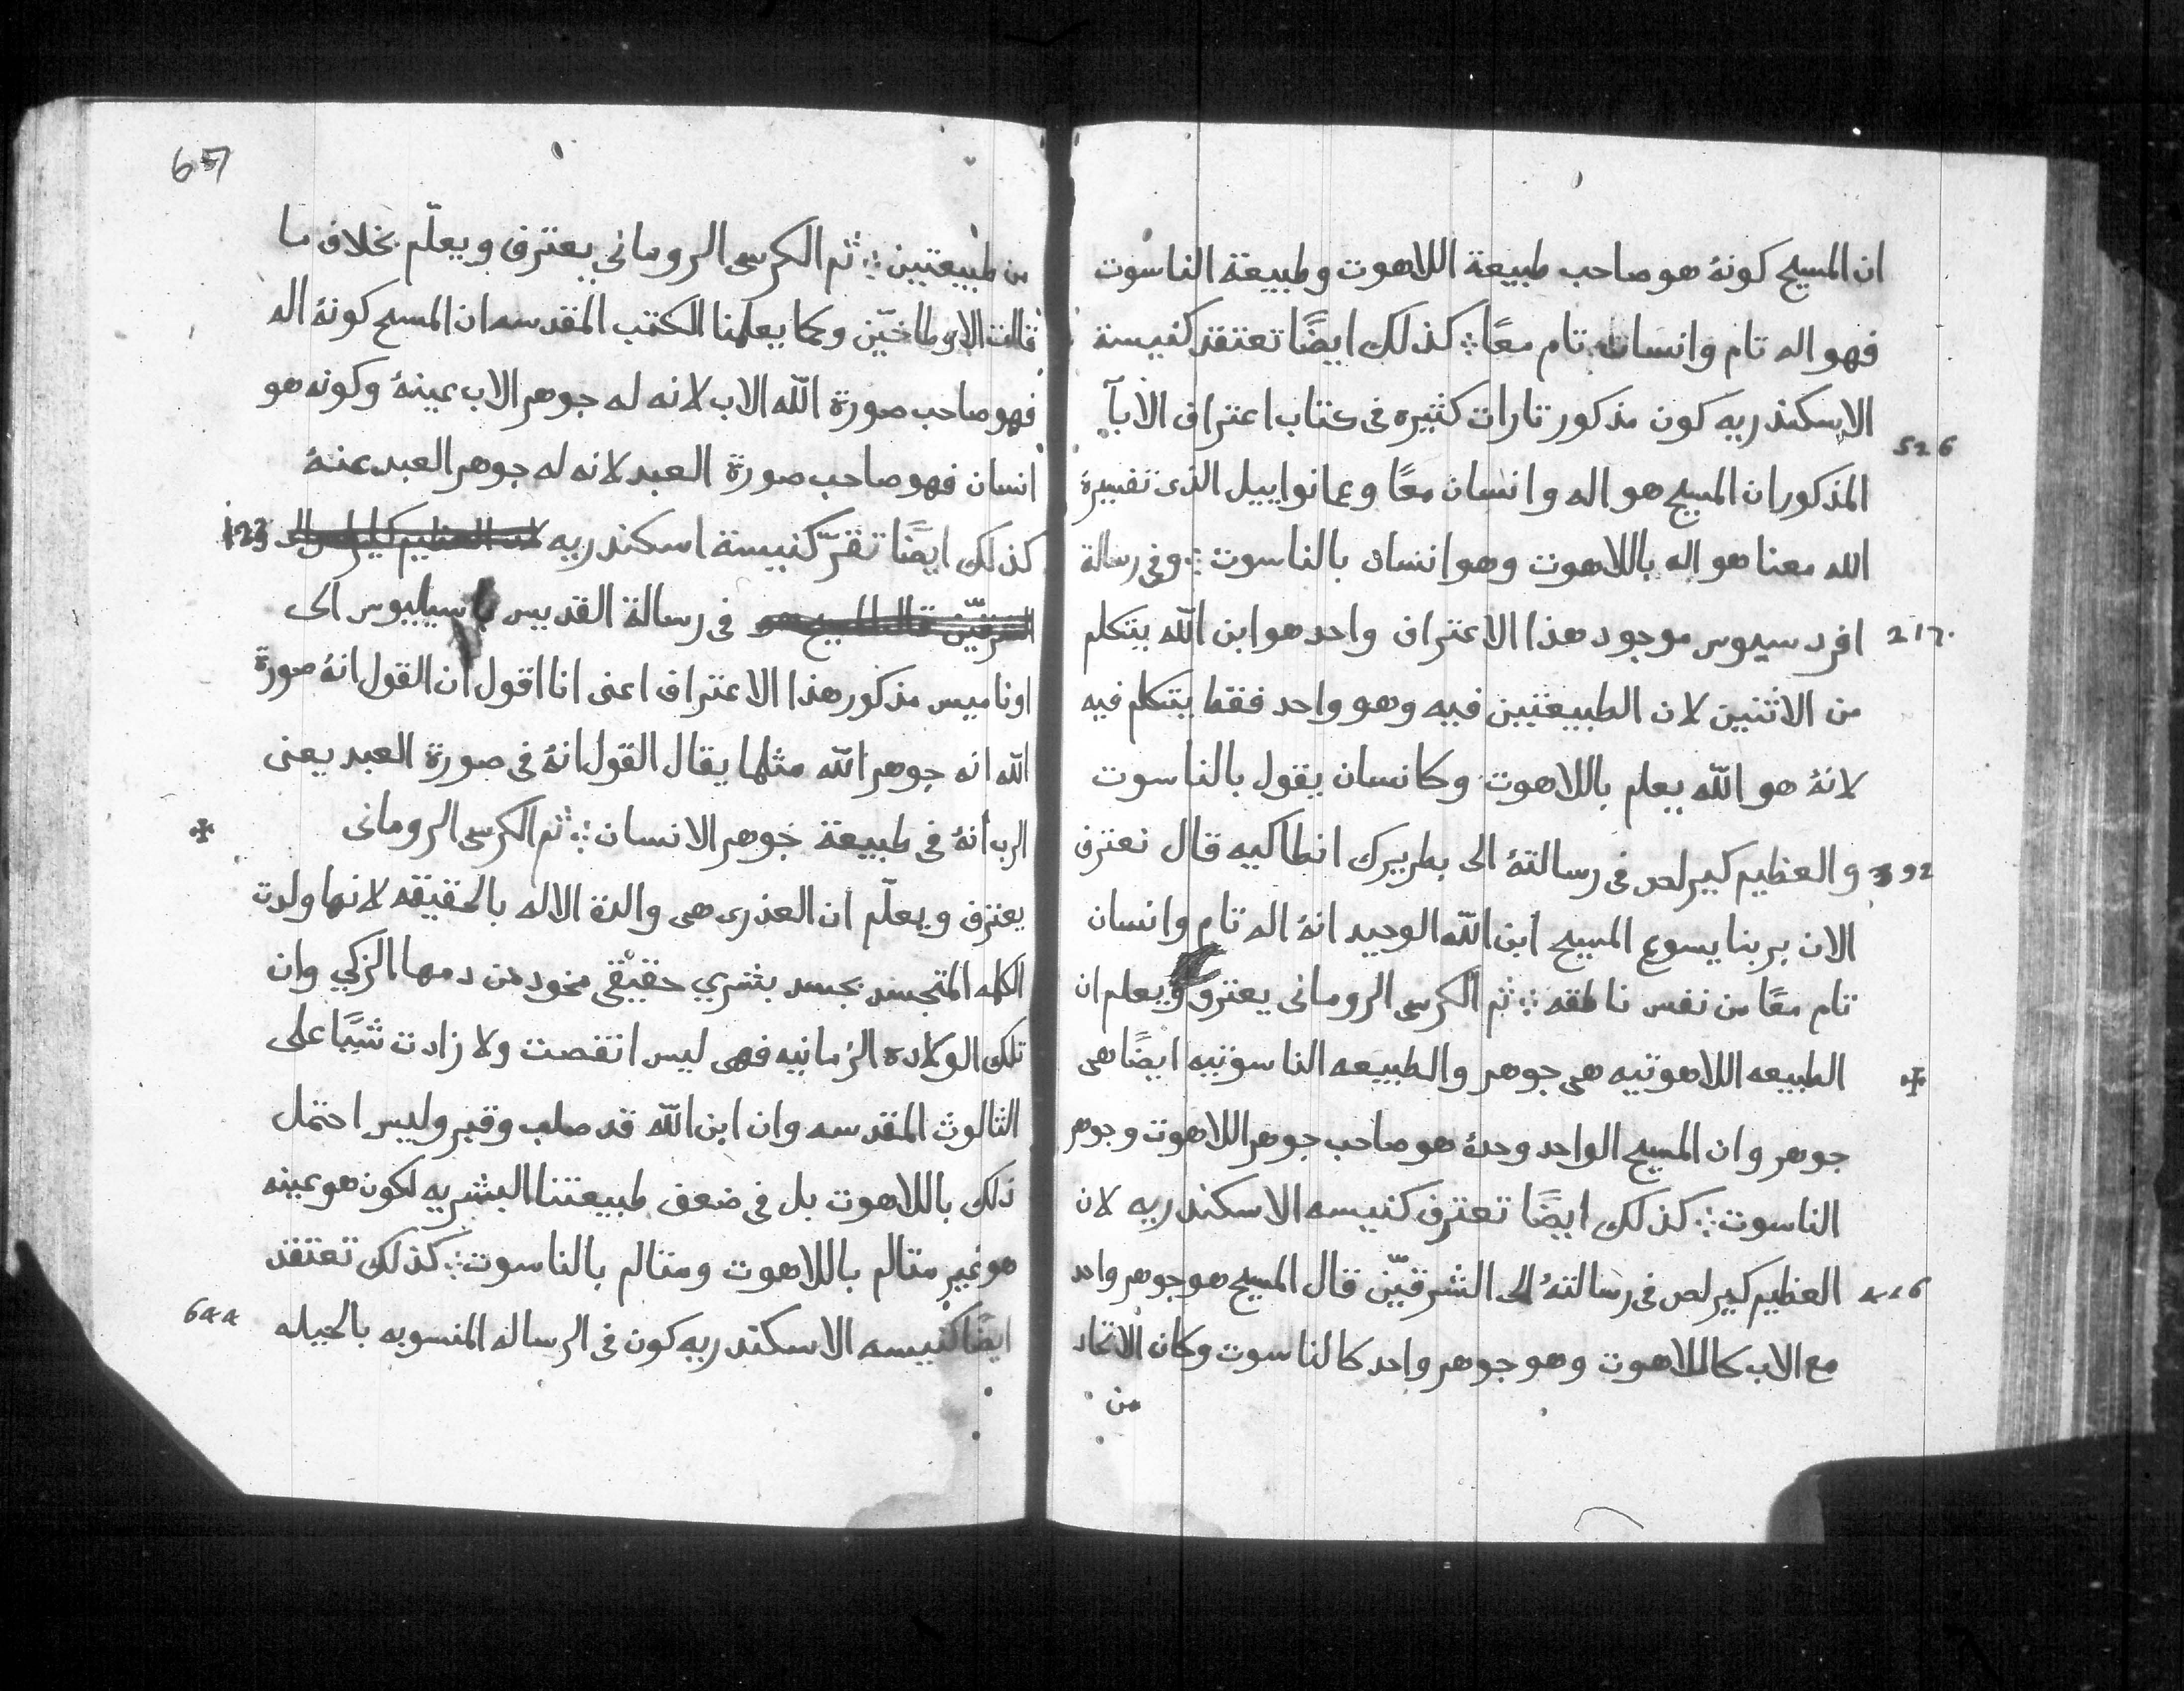 ان المسيح كونهٔ هو صاحب طبيعة اللاهوت وطبيعة الناسوت
فهو اله تام وانسان تام معًا ؛ كذلك ايضًا تعتقد كنيسة
الاسكندريه كون مذكور تارات كثيره فى كتاب اعتراف الابآ
526
المذكور ان المسيح هو اله وانسان معًا وعمانواييل الذى تفسيرهٔ
الله معنا هو اله باللاهوت وهو انسان بالناسوت ؛ وفى رسالة
217.
افرد سيوس موجود هذا الاعتراف واحد هو ابن الله يتكلم
من الاثنين لان الطبيعتين فيه وهو واحد فقط يتكلم فيه
لانهٔ هو الله يعلم باللاهوت وكانسان يقول بالناسوت
392
والعظيم كيرلص فى رسالتهٔ الى بطريرك انطاكيه قال نعترف
الان بربنا يسوع المسيح ابن الله الوحيد انهٔ اله تام وانسان
تام معًا من نفس ناطقه ؛ ثم الكرسى الرومانى يعترف ويعلم ان
الطبيعه اللاهوتيه هى جوهر والطبيعه الناسوتيه ايضًا هى
جوهر وان المسيح الواحد وحدهٔ هو صاحب جوهر اللاهوت وجوهر
الناسوت ؛ كذلك ايضًا تعترف كنيسه الاسكندريه لان
العظيم كيرلص فى رسالتهٔ الى الشرقيّن قال المسيح هو جوهر واحد
مع الاب كاللاهوت وهو جوهر واحد كالناسوت وكان الاتحاد
من
657
من طبيعتين ؛ ثم الكرسى الرومانى يعترف ويعلّم بخلاف ما
قالت الاوطاخيّن وكما يعلمنا الكتب المقدسه ان المسيح كونهٔ اله
فهو صاحب صورة الله الاب لانه له جوهر الاب عينهٔ وكونه هو
انسان فهو صاحب صورة العبد لانه له جوهر العبد عنهٔ
كذلك ايضًا تقرّ كنيسة اسكندريه
123
الشرقيّن قال المسيح هو فى رسالة القديس باسيليوس الى
اوناميس مذكور هذا الاعتراف اعنى انا اقول ان القول انهٔ صورة
الله انه جوهر الله مثلما يقال القول انهٔ فى صورة العبد يعنى
الرب انهٔ فى طبيعة جوهر الانسان ؛ ثم الكرسى الرومانى
يعترف ويعلّم ان العذرى هى والدة الاله بالحقيقه لانها ولدت
الكلمه المتجسد بجسد بشري حقيقى ماخود من دمها الزكي وان
تلك الولاده الزمانيه فهى ليس انتقصت ولا زادت شيًا على
الثالوث المقدسه وان ابن الله قد صلب وقبر وليس احتمل
ذلك باللاهوت بل فى ضعف طبيعتنا البشريه لكون هو عينه
هو غير متالم باللاهوت ومتالم بالناسوت ؛ كذلك تعتقد
ايضًا كنيسه الاسكندريه كون فى الرساله المنسوبه بالجيله
644